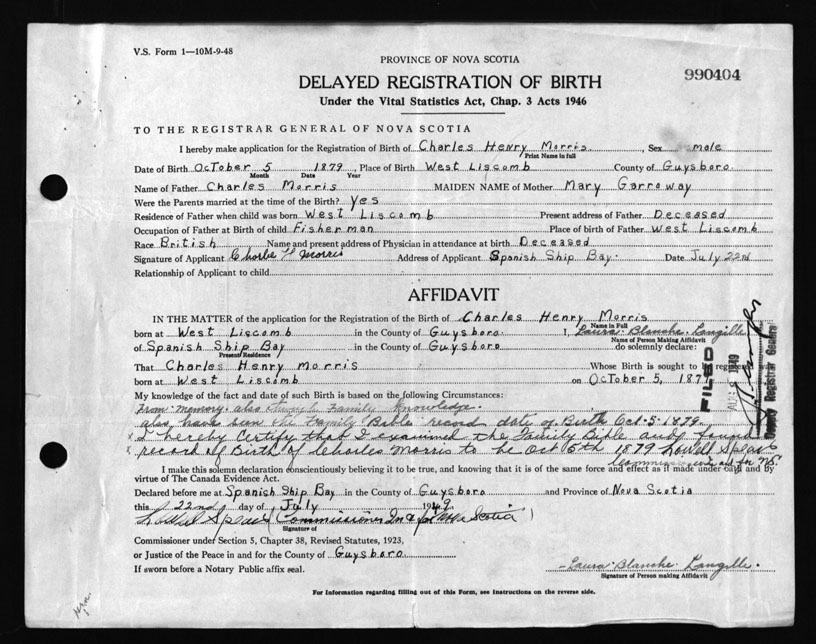 V.S. Form 1—10M-9-48
PROVINCE OF NOVA SCOTIA
990404
DELAYED REGISTRATION OF BIRTH
Under the Vital Statistics Act, Chap. 3 Acts 1946
TO THE REGISTRAR GENERAL OF NOVA SCOTIA
I hereby make application for the Registration of Birth of Charles Henry Morris, Sex male
Print Name in full
Date of Birth October 5 1879, Place of Birth West Liscomb County of Guysboro
Month Date Year
Name of Father Charles Morris MAIDEN NAME of Mother Mary Garroway
Were the Parents married at the time of the Birth? Yes
Residence of Father when child was born West Liscomb Present address of Father Deceased
Occupation of Father at Birth of child Fisherman Place of birth of Father West Liscomb
Race British Name and present address of Physician in attendance at birth Deceased
Signature of Applicant Charlie H Morris Address of Applicant Spanish Ship Bay. Date July 22nd
Relationship of Applicant to child
AFFIDAVIT
IN THE MATTER of the application for the Registration of the Birth of Charles Henry Morris
Name in Full
born at West Liscomb in the County of Guysboro I, Laura Blanche Langille
Name of Person Making Affidavit
of Spanish Ship Bay in the County of Guysboro do solemnly declare:
Present Residence
That Charles Henry Morris Whose Birth is sought to be registered
born at West Liscomb on October 5, 1879
FILED
1949
Deputy Registrar General
My knowledge of the fact and date of such Birth is based on the following Circumstances:
From memory. also through Family Knowledge.
also, have seen the Family Bible record date of Birth Oct. 5. 1879.
x I hereby certify that I examined the Family Bible and found
x record of Birth of Charles Morris to be Oct 5th 1879 Lowell Spears
I make this solemn declaration conscientiously believing it to be true, and knowing that it is of the same force and effect as if made under oath and By
virtue of The Canada Evidence Act.
Declared before me at Spanish Ship Bay in the County of Guysboro and Province of Nova Scotia
this 22nd day of July 1949
Lowell Spears (Commissioner In & for Nova Scotia)
Signature of
Commissioner under Section 5, Chapter 38, Revised Statutes, 1923,
or Justice of the Peace in and for the County of Guysboro
If sworn before a Notary Public affix seal.
Laura Blanche Langille.
Signature of Person making Affidavit
For Information regarding filling out of this Form, see Instructions on the reverse side.